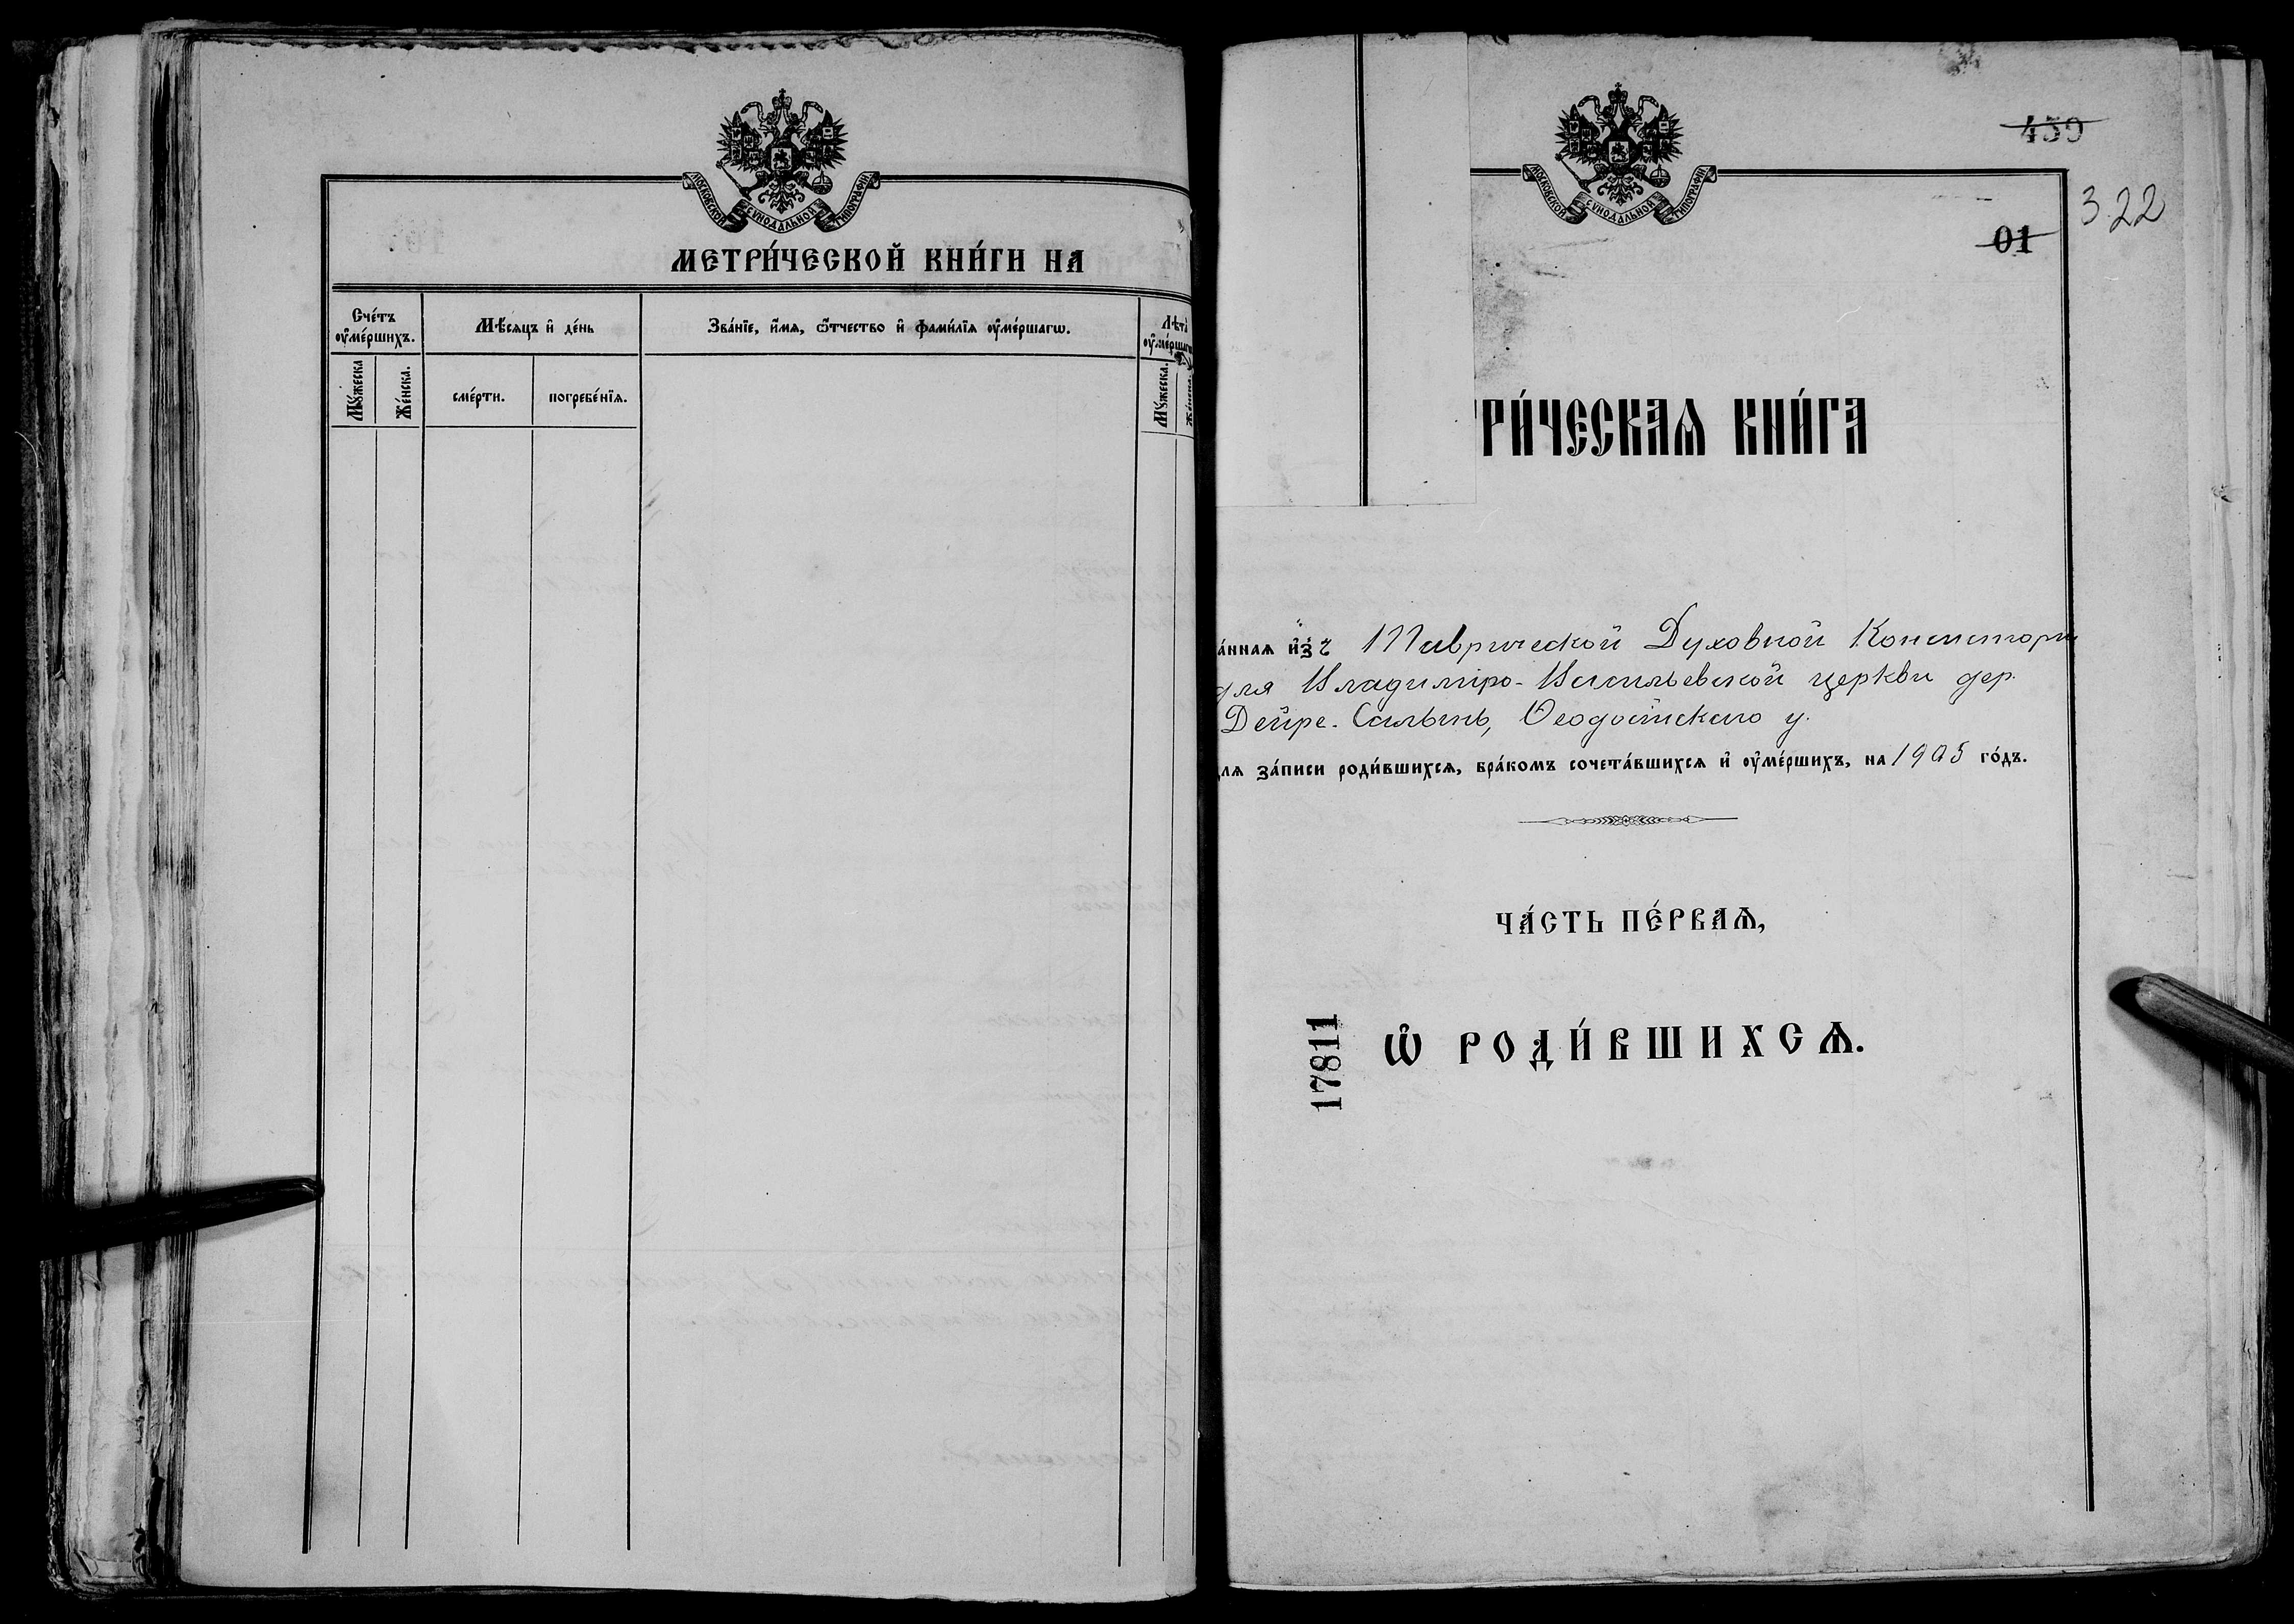 МОСКОВСКОЙ СѴНОДАЛЬНОЙ ТИПОГРАФІИ
МЕТРИ́ЧЕСКОЙ КНИ́ГИ НА
Сче́тъ ᲂу҆ме́ршихъ.
Мѣ́сѧцъ и҆ де́нь
Зва́нїе, и҆́мѧ, ѻ҆́тчество и҆ фами́лїѧ ᲂу҆ме́ршагѡ.
Лѣ́та ᲂу҆ме́ршагѡ
Мꙋ́жеска
Же́нска.
сме́рти.
погребе́нїѧ.
Мꙋ́жеска.
Же́нска.
459
322
МОСКОВСКОЙ СѴНОДАЛЬНОЙ ТИПОГРАФІИ
01
РИ́ЧЕСКАѦ КНИ́ГА
а́ннаѧ и҆з̾ Таврической Духовной Консистори
для Владиміро-Васильевской церкви дер.
Дейре-Салынь, Ѳеодосійскаго у.
лѧ за́писи роди́вшихсѧ, бра́комъ сочета́вшихсѧ и҆ ᲂу҆ме́ршихъ, на 1905 го́дъ.
ЧА́СТЬ ПЕ́РВАѦ,
Ѽ РОДИ́ВШИХСѦ.
17811